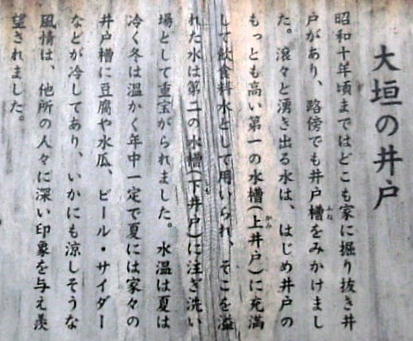 大垣の井戸
昭和十年頃まではどこも家に掘り抜き井
戸があり、路傍でも井戸槽をみかけまし
た。滾々と湧き出る水は、はじめ井戸の
もっとも高い第一の水槽(上井戸)に充満
して飲食料水として用いられ、そこを溢
れた水は第二の水槽(下井戸)に注ぎ洗い
場として重宝がられました。水温は夏は
冷く冬は温かく年中一定で夏には家々の
井戸槽に豆腐や水瓜、ビール・サイダー
などが冷してあり、いかにも涼しそうな
風情は、他所の人々に深い印象を与え羨
望されました。